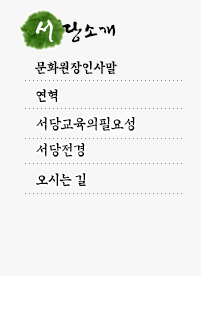 서당소개
문화원장인사말
연혁
서당교육의필요성
서당전경
오시는 길